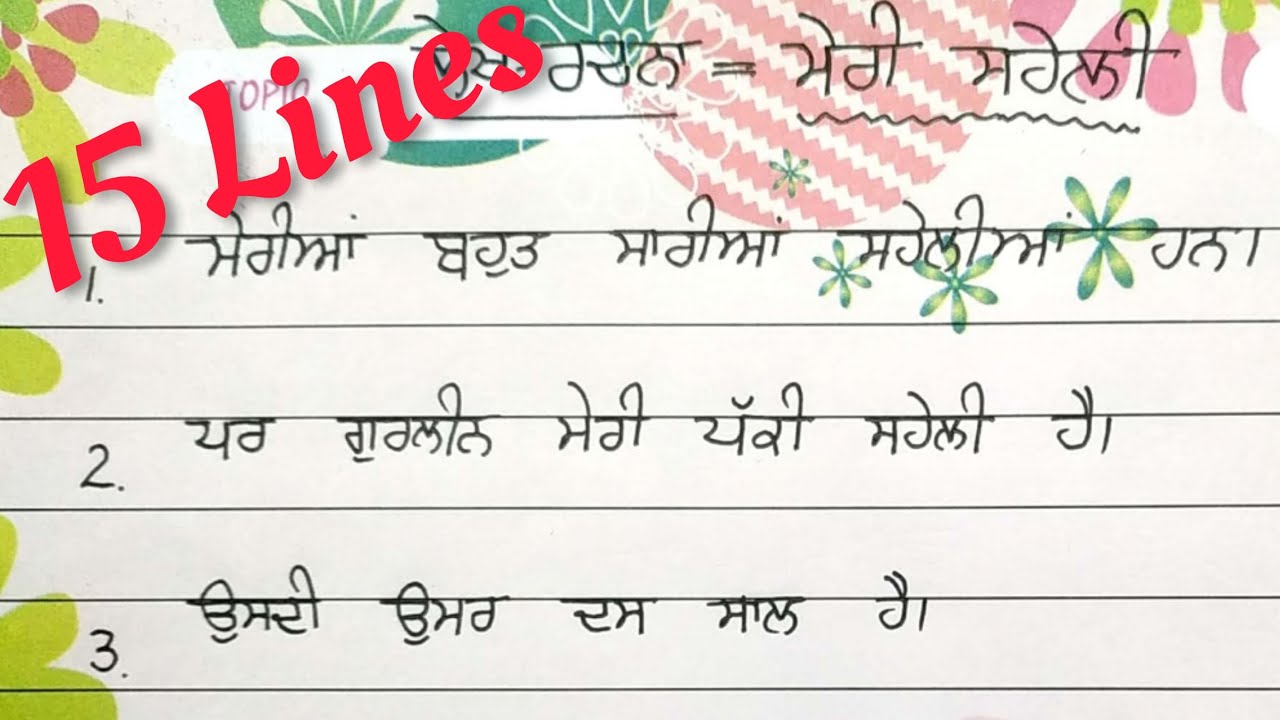 15 Lines
TOPIC
ਲੇਖ ਰਚਨਾ = ਮੇਰੀ ਸਹੇਲੀ
1. ਮੇਰੀਆਂ ਬਹੁਤ ਸਾਰੀਆਂ ਸਹੇਲੀਆਂ ਹਨ।
2. ਪਰ ਗੁਰਲੀਨ ਮੇਰੀ ਪੱਕੀ ਸਹੇਲੀ ਹੈ।
3. ਉਸਦੀ ਉਮਰ ਦਸ ਸਾਲ ਹੈ।